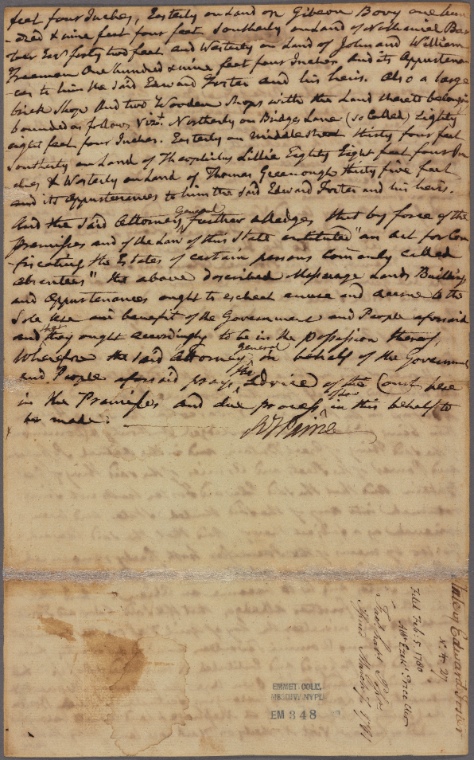 feet four Inches, Easterly on Land on Gibeon Bovy one hun
-dred & nine feet four feet Southerly on Land of Nathaniel
forty two feet and Westerly on Land of John and William
Freeman One hundred & nine feet four Inches and its Appurtenen
ces to him the said Edward Foster and his heirs. Also a large
brick Shop And two Wooden Shops with the Land thereto belonging
bounded as follows Viz.t Northerly on Bridges Lane (so Called) Eighty
eight feet four Inches. Easterly on Middle street thirty four feet
Southerly on Land of Theophilus Lillie Eighty Eight feet four In
ches & Westerly on Land of Thomas Greenough thirty five feet
and its Appurtenences to him the said Edward Foster and his heirs.
And the said Attorney General further alledges that by force of the
Premisses and of the Law of this State entituled "an Act for Con
-fiscating the Estates of certain persons commonly called
absentees" the above described Messuage Lands Buildings
and Appurtenances ought to escheat enure and accrue to the
Sole Use and benefit of the Government and People aforesaid
and they ought accordingly to be in the Possession thereof,
Wherefore the said Attorney General on behalf of the Government
and People aforesaid prays the advice of the Court here
in the Premisses and due process in this behalf to
be made.
RTPaine
Edward Foster
Filed Feb. 5 1780
1781
EMMET COLL.
MSS DIV. NYPL
EM 348